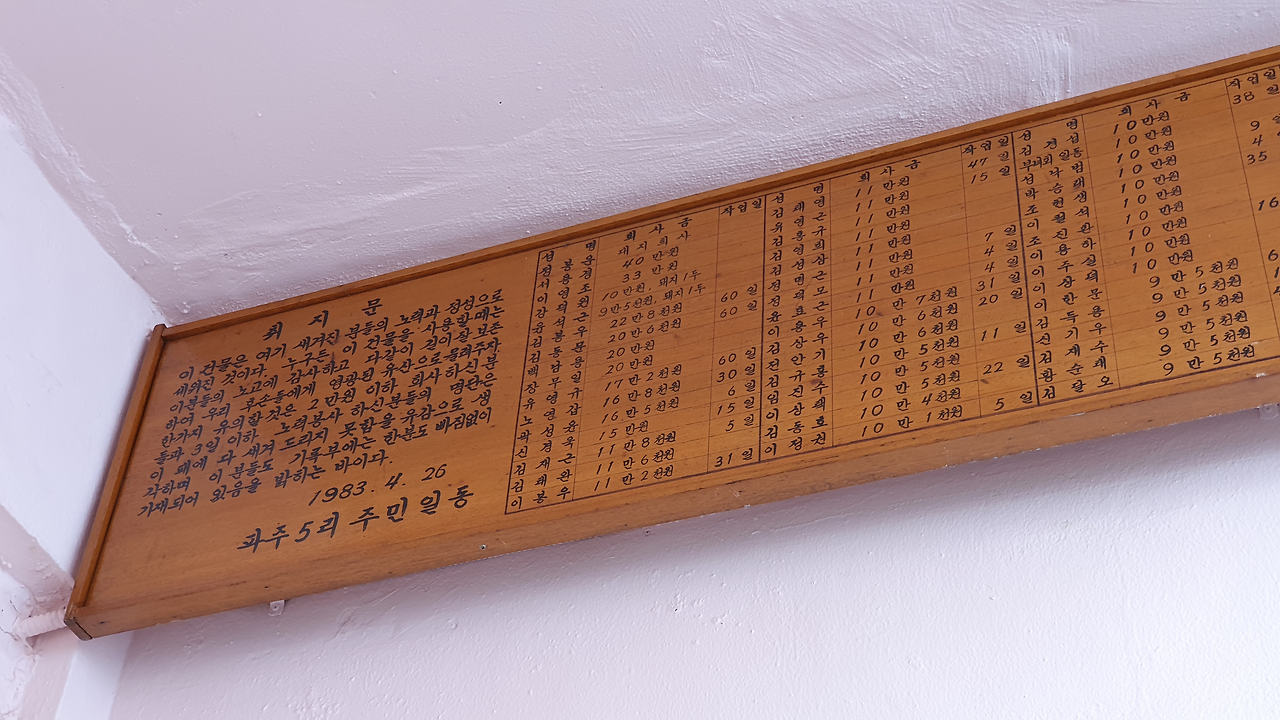 취지문
이 건물은 여기 새겨진 분들의 노력과 정성으로
세워진 것이다. 누구든 이 건물을 사용할때는
이분들의 노고에 감사하고 다같이 길이 잘 보존
하여 우리 후손들에게 영광된 유산으로 물려주자.
한가지 유의할 것은 2만원 이하 회사하신 분
들과 3일 이하 노력봉사 하신분들의 명단은
이 패에 다 새겨 드리지 못함을 유감으로 생
각하며 이 분들도 기록부에는 한분도 빠짐없이
기재되어 있음을 밝히는 바이다.
1983. 4. 26
파주5리 주민일동
성명 희사금 작업일
정봉운 대지희사
서용경 40만원
이영조 33만원
강덕원 10만원, 돼지1두
윤석근 9만5천원, 돼지1두 60일
김봉우 22만8천원 60일
김동문 20만6천원
백남용 20만원
장무일 20만원 60일
유영규 17만2천원 30일
노영갑 16만8천원 6일
곽성윤 16만5천원 15일
신경욱 15만원 5일
김재근 11만8천원
김태완 11만6천원 31일
이봉우 11만2천원
성명 희사금 작업일
김태영 11만원 47일
유영근 11만원 15일
김홍규 11만원
김영희 11만원
김성산 11만원 7일
정명근 11만원 4일
정덕모 11만원 4일
윤효근 10만7천원 31일
이용우 10만6천원 20일
김상우 10만6천원
전안기 10만5천원 11일
김규홍 10만5천원
임진수 10만5천원 22일
이상해 10만4천원
김동호 10만1천원 5일
이정권
성명 희사금 작업일
김경섭 10만원 38일
부녀회일동 10만원
성낙범 10만원 9일
박승래 10만원 4일
조헌생 10만원 35일
이월석 10만원
조진환 10만원 16
이용하 10만원
이주실 10만원
이상덕 9만5천원 6
이한문 9만5천원
김득용 9만5천원
신기우 9만5천원
김재수 9만5천원
황순래
김달오